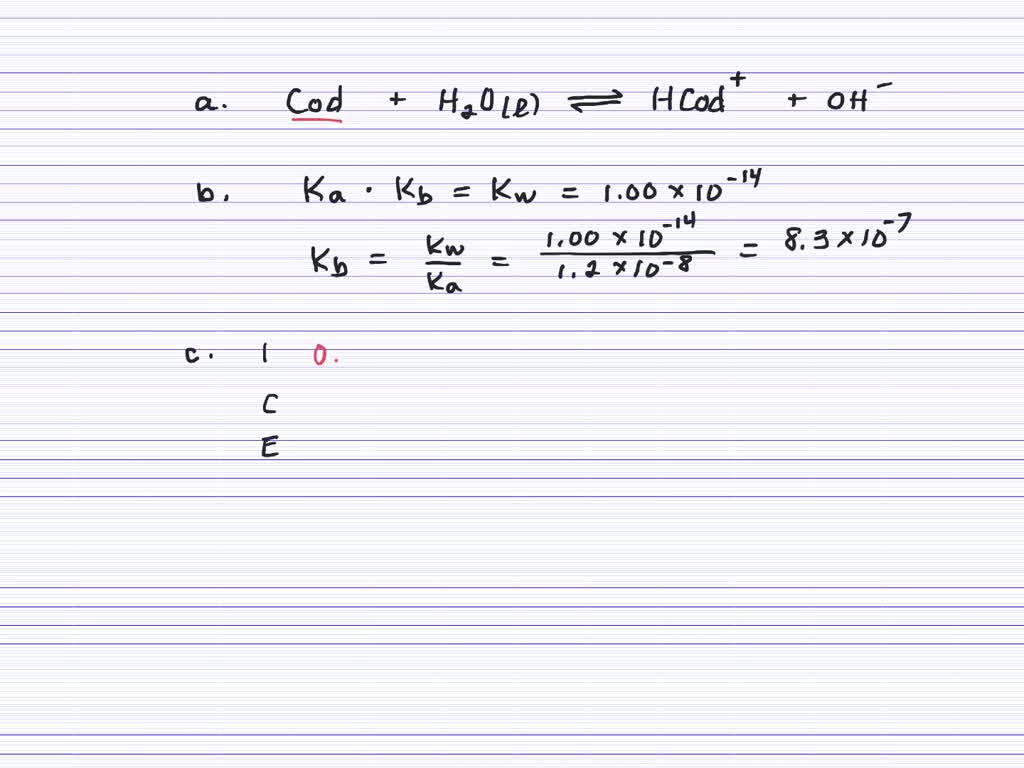 a. Cod + H₂O(l) ⇌ HCod⁺ + OH⁻
b. Ka · Kb = Kw = 1.00 × 10⁻¹⁴
Kb = Kw/Ka = 1.00 × 10⁻¹⁴/1.2 × 10⁻⁸ = 8.3 × 10⁻⁷
c. I 0.
C
E